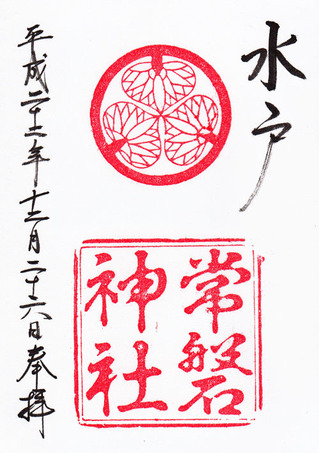 水戸
常磐
神社
平成二十二年十二月二十六日奉拝